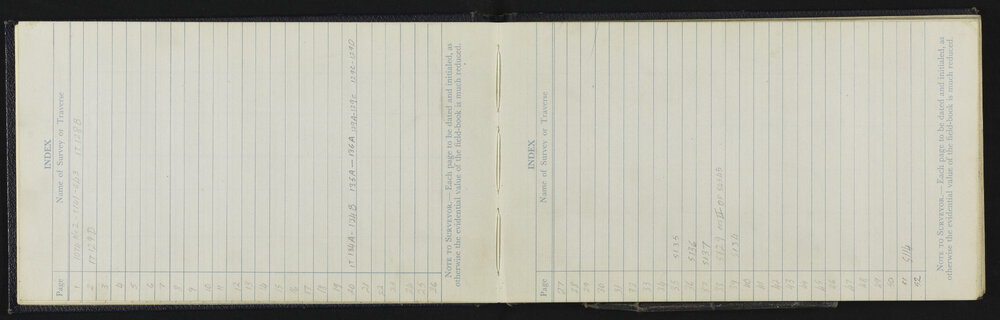 INDEX
Page Name of Survey or Traverse
1
2 1T129D
3
4
5
6
7
8
9
10
11
12
13
14
15
16
17
18
19
20 1T134A-134B 135A-136A 129A-129C 129C-129D
21
22
23
24
25
26
NOTE TO SURVEYOR.—Each page to be dated and initialed, as
otherwise the evidential value of the field-book is much reduced.
INDEX
Page Name of Survey or Traverse
27
28
29
30
31
32
33
34
35 5135
36 5136
37 5137
38 5129
39 5134
40
41
42
43
44
45
46
47
48
49
50
51 5114
52
NOTE TO SURVEYOR.—Each page to be dated and initialed, as
otherwise the evidential value of the field-book is much reduced.